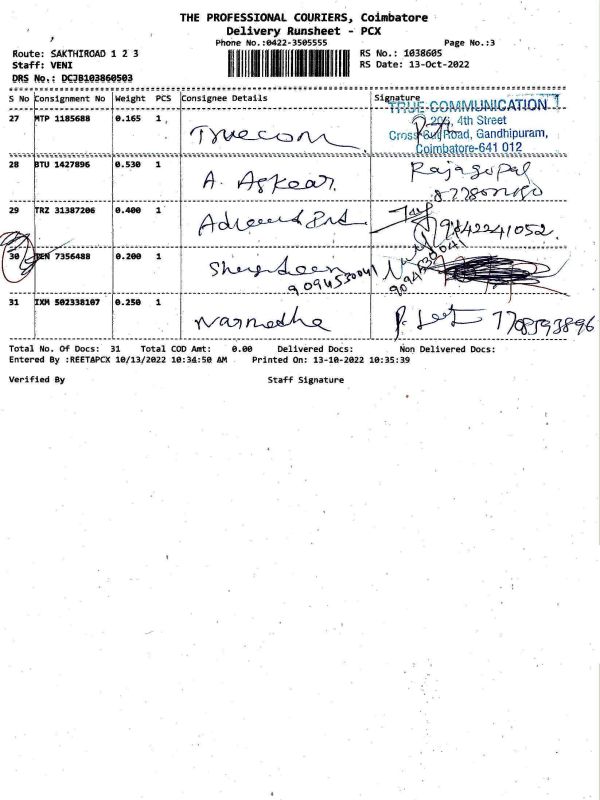 THE PROFESSIONAL COURIERS, Coimbatore
Delivery Runsheet - PCX
Phone No.:0422-3505555 Page No.:3
Route: SAKTHIROAD 1 2 3 RS No.: 1038605
Staff: VENI RS Date: 13-Oct-2022
DRS No.: DCJB103860503
S No Consignment No Weight PCS Consignee Details Signature
TRUE COMMUNICATION
27 MTP 1185688 0.165 1 Truecom 4th Street
Cross Cut Road, Gandhipuram,
Coimbatore-641 012
28 BTU 1427896 0.530 1 A. Askar Rajagopal
29 TRZ 31387206 0.400 1 9842241052
30 DEN 7356488 0.200 1
9094530041 9094530041
31 IXM 502338107 0.250 1 Narmedha 7708593896
Total No. Of Docs: 31 Total COD Amt: 0.00 Delivered Docs: Non Delivered Docs:
Entered By :REETAPCX 10/13/2022 10:34:50 AM Printed On: 13-10-2022 10:35:39
Verified By Staff Signature